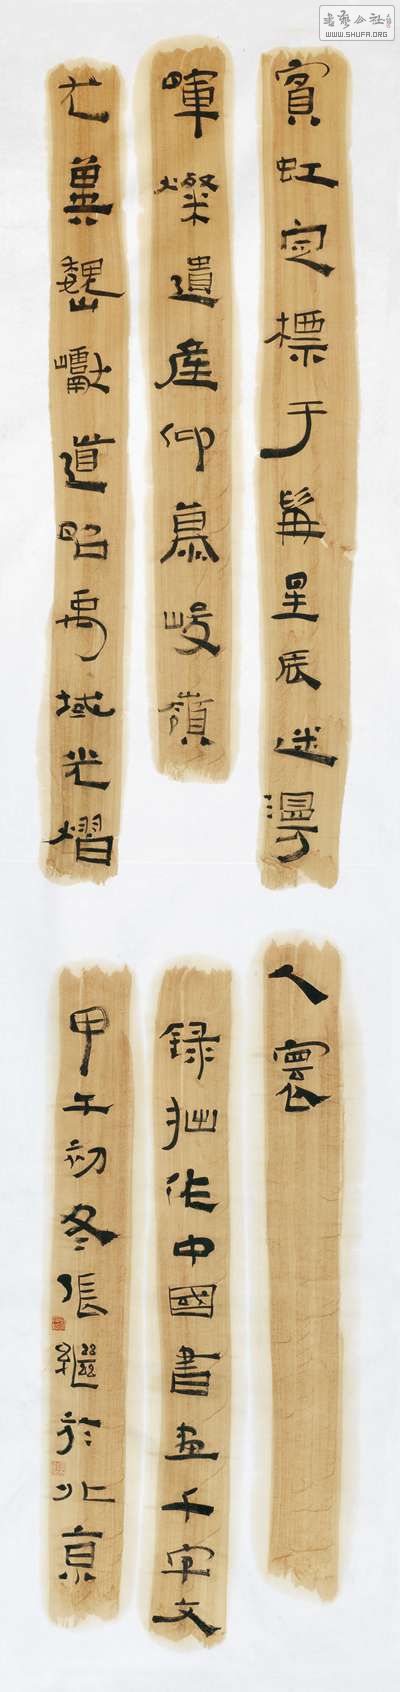 書藝公社
WWW.SHUFA.ORG
賓虹定標于髯星辰迷漫
暉燦遺産仰慕峻嶺
尤冀巍巘道昭禹域光熠
人寰
録拙作中國書畫千字文
甲午初冬張繼於北京